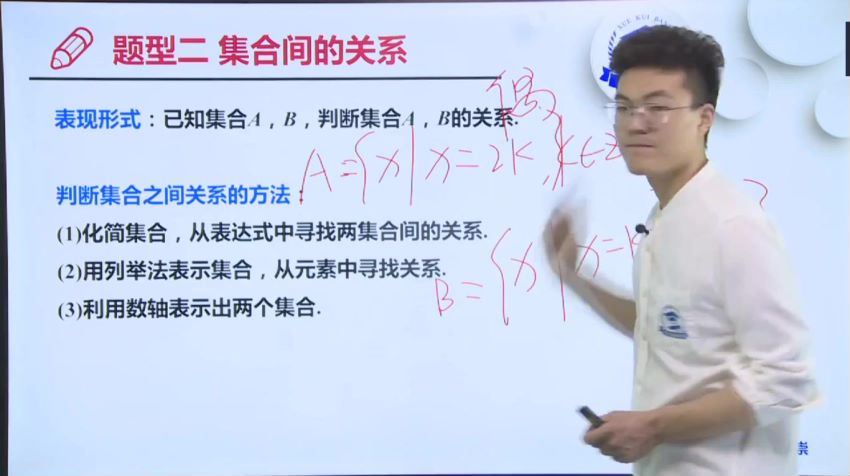 XUE KUI BA
题型二 集合间的关系
表现形式：已知集合A，B，判断集合A，B的关系.
偶
A={x|x=2k,k∈Z
判断集合之间关系的方法：
(1)化简集合，从表达式中寻找两集合间的关系.
B={x|x=k
(2)用列举法表示集合，从元素中寻找关系.
(3)利用数轴表示出两个集合.
崇